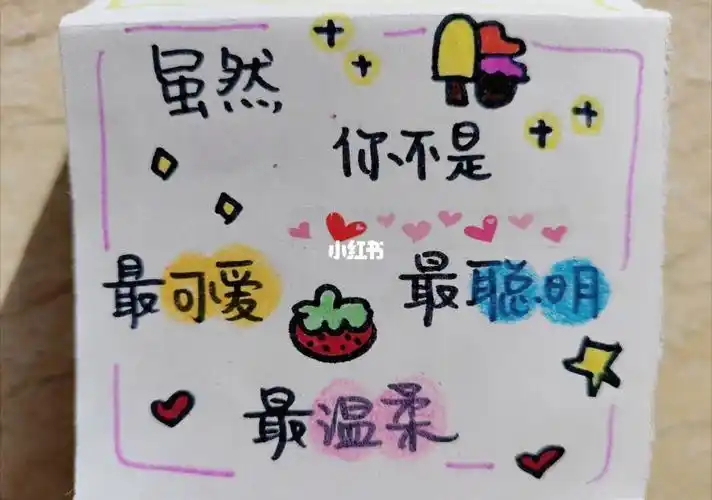 虽然
你不是
小红书
最可爱 最聪明
最温柔